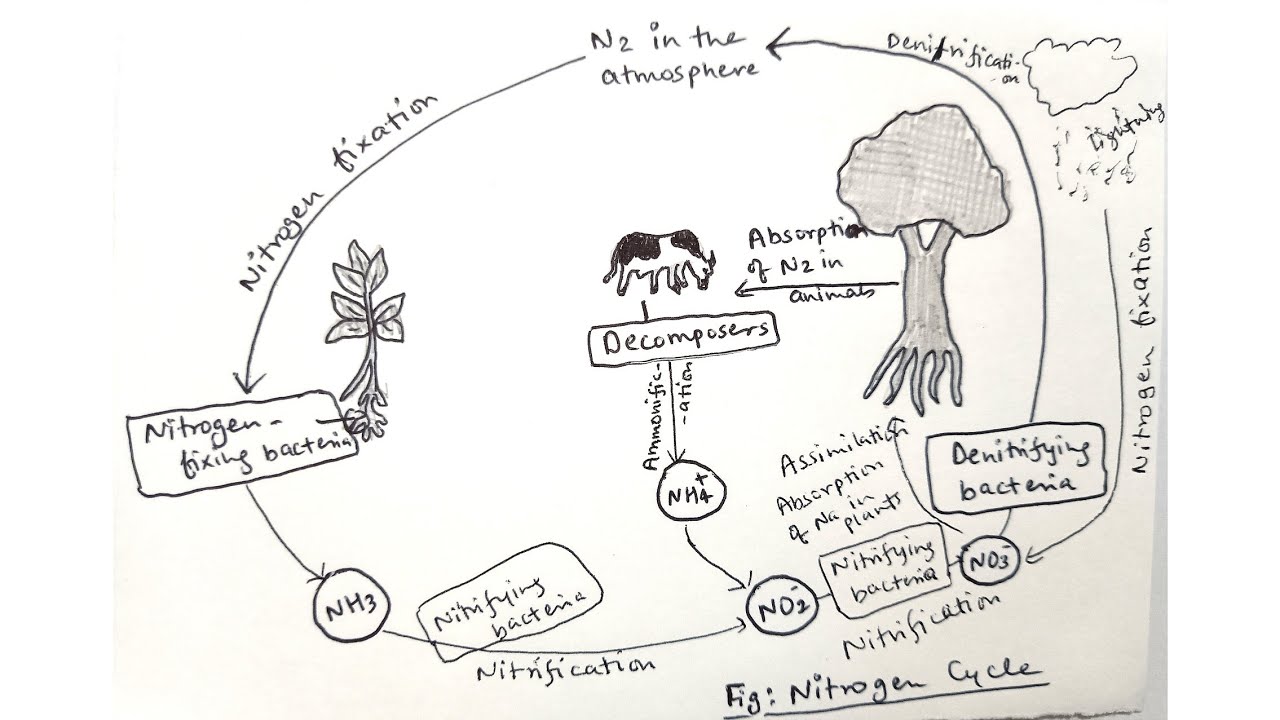 N2 in the
atmosphere
Denitrificati-
-on
Lightning
Nitrogen fixation
Nitrogen fixation
Absorption
of N2 in
animals
Decomposers
Ammonific-
-ation
Nitrogen-
fixing bacteria
NH4+
Assimilation
Absorption
of Na in
plants
Denitrifying
bacteria
NH3
Nitrifying
bacteria
Nitrification
NO2-
Nitrifying
bacteria
Nitrification
NO3-
Fig: Nitrogen Cycle